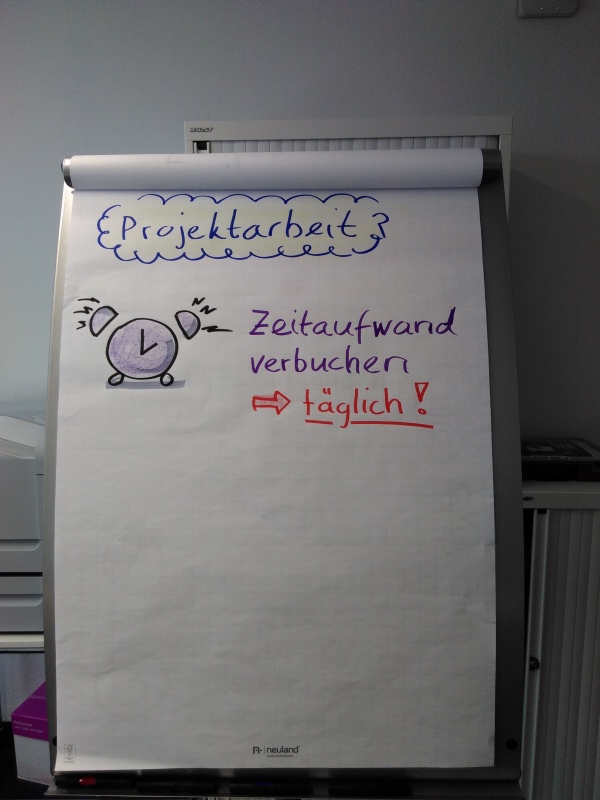 Projektarbeit
Zeitaufwand
verbuchen
⇨ täglich!
neuland